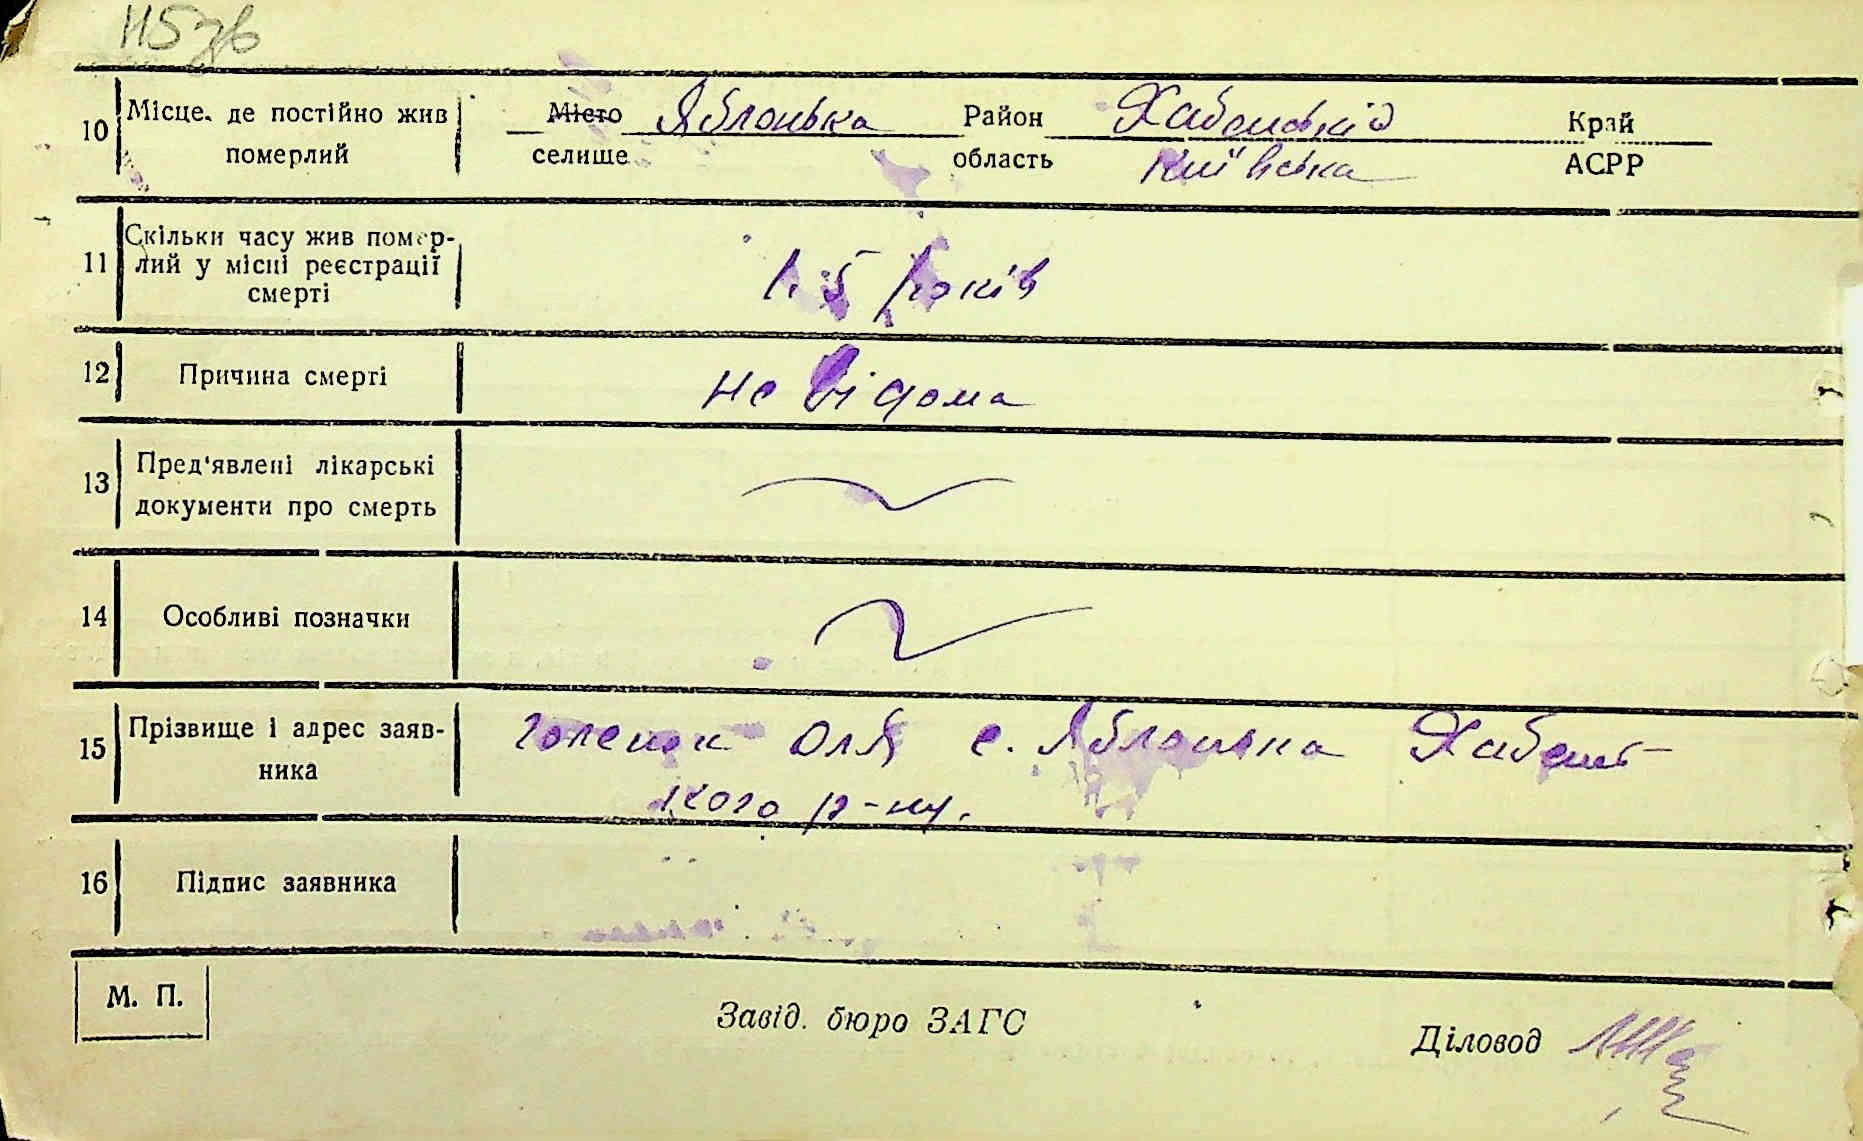 10 Місце, де постійно жив померлий
Місто Яблонька Район Хабенській Край
селище область Київська АСРР
11 Скільки часу жив помер-
лий у місці реєстрації
смерті
15 років
12 Причина смерті не відома
13 Пред'явлені лікарські
документи про смерть
14 Особливі позначки
15 Прізвище і адрес заяв-
ника
Оля с. Яблонька Хабенсь-
кого р-ну.
16 Підпис заявника
М. П.
Завід. бюро ЗАГС
Діловод